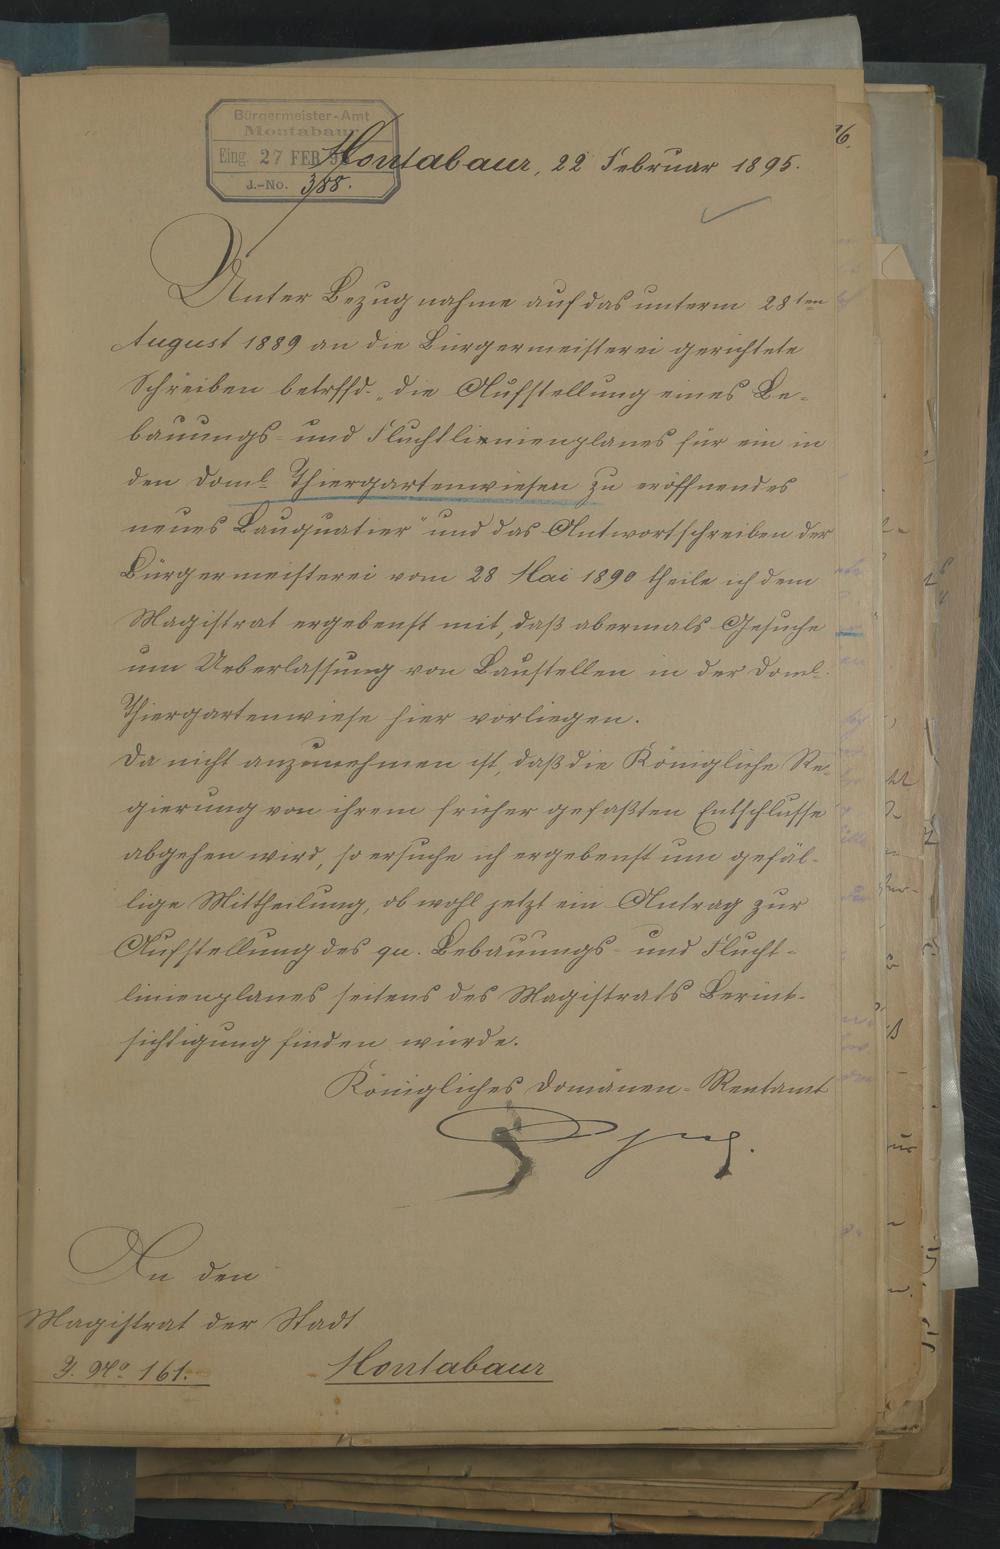 Bürgermeister-Amt
Montabaur
Eing. 27 FEB 95
J.-No. 388.
Montabaur, 22 Februar 1895.
Unter Bezugnahme auf das unterm 28ten
August 1889 an die Bürgermeisterei gerichtete
Schreiben betrffd. „die Aufstellung eines Be-
bauungs- und Fluchtlinienplanes für ein in
den doml. Thiergartenwiesen zu eröffnendes
neues Bauquatier" und das Antwortschreiben der
Bürgermeisterei vom 28 Mai 1890 theile ich dem
Magistrat ergebenst mit, daß abermals Gesuche
um Ueberlassung von Baustellen in der doml.
Thiergartenwiese hier vorliegen.
Da nicht anzunehmen ist, daß die Königliche Re-
gierung von ihrem früher gefaßten Entschlusse
abgehen wird, so ersuche ich ergebenst um gefäl-
lige Mittheilung, ob wohl jetzt ein Antrag zur
Aufstellung des qu. Bebauungs- und Flucht-
linienplanes seitens des Magistrats Berück-
sichtigung finden würde.
Königliches Domänen-Rentamt
An den
Magistrat der Stadt
J. No. 161. Montabaur